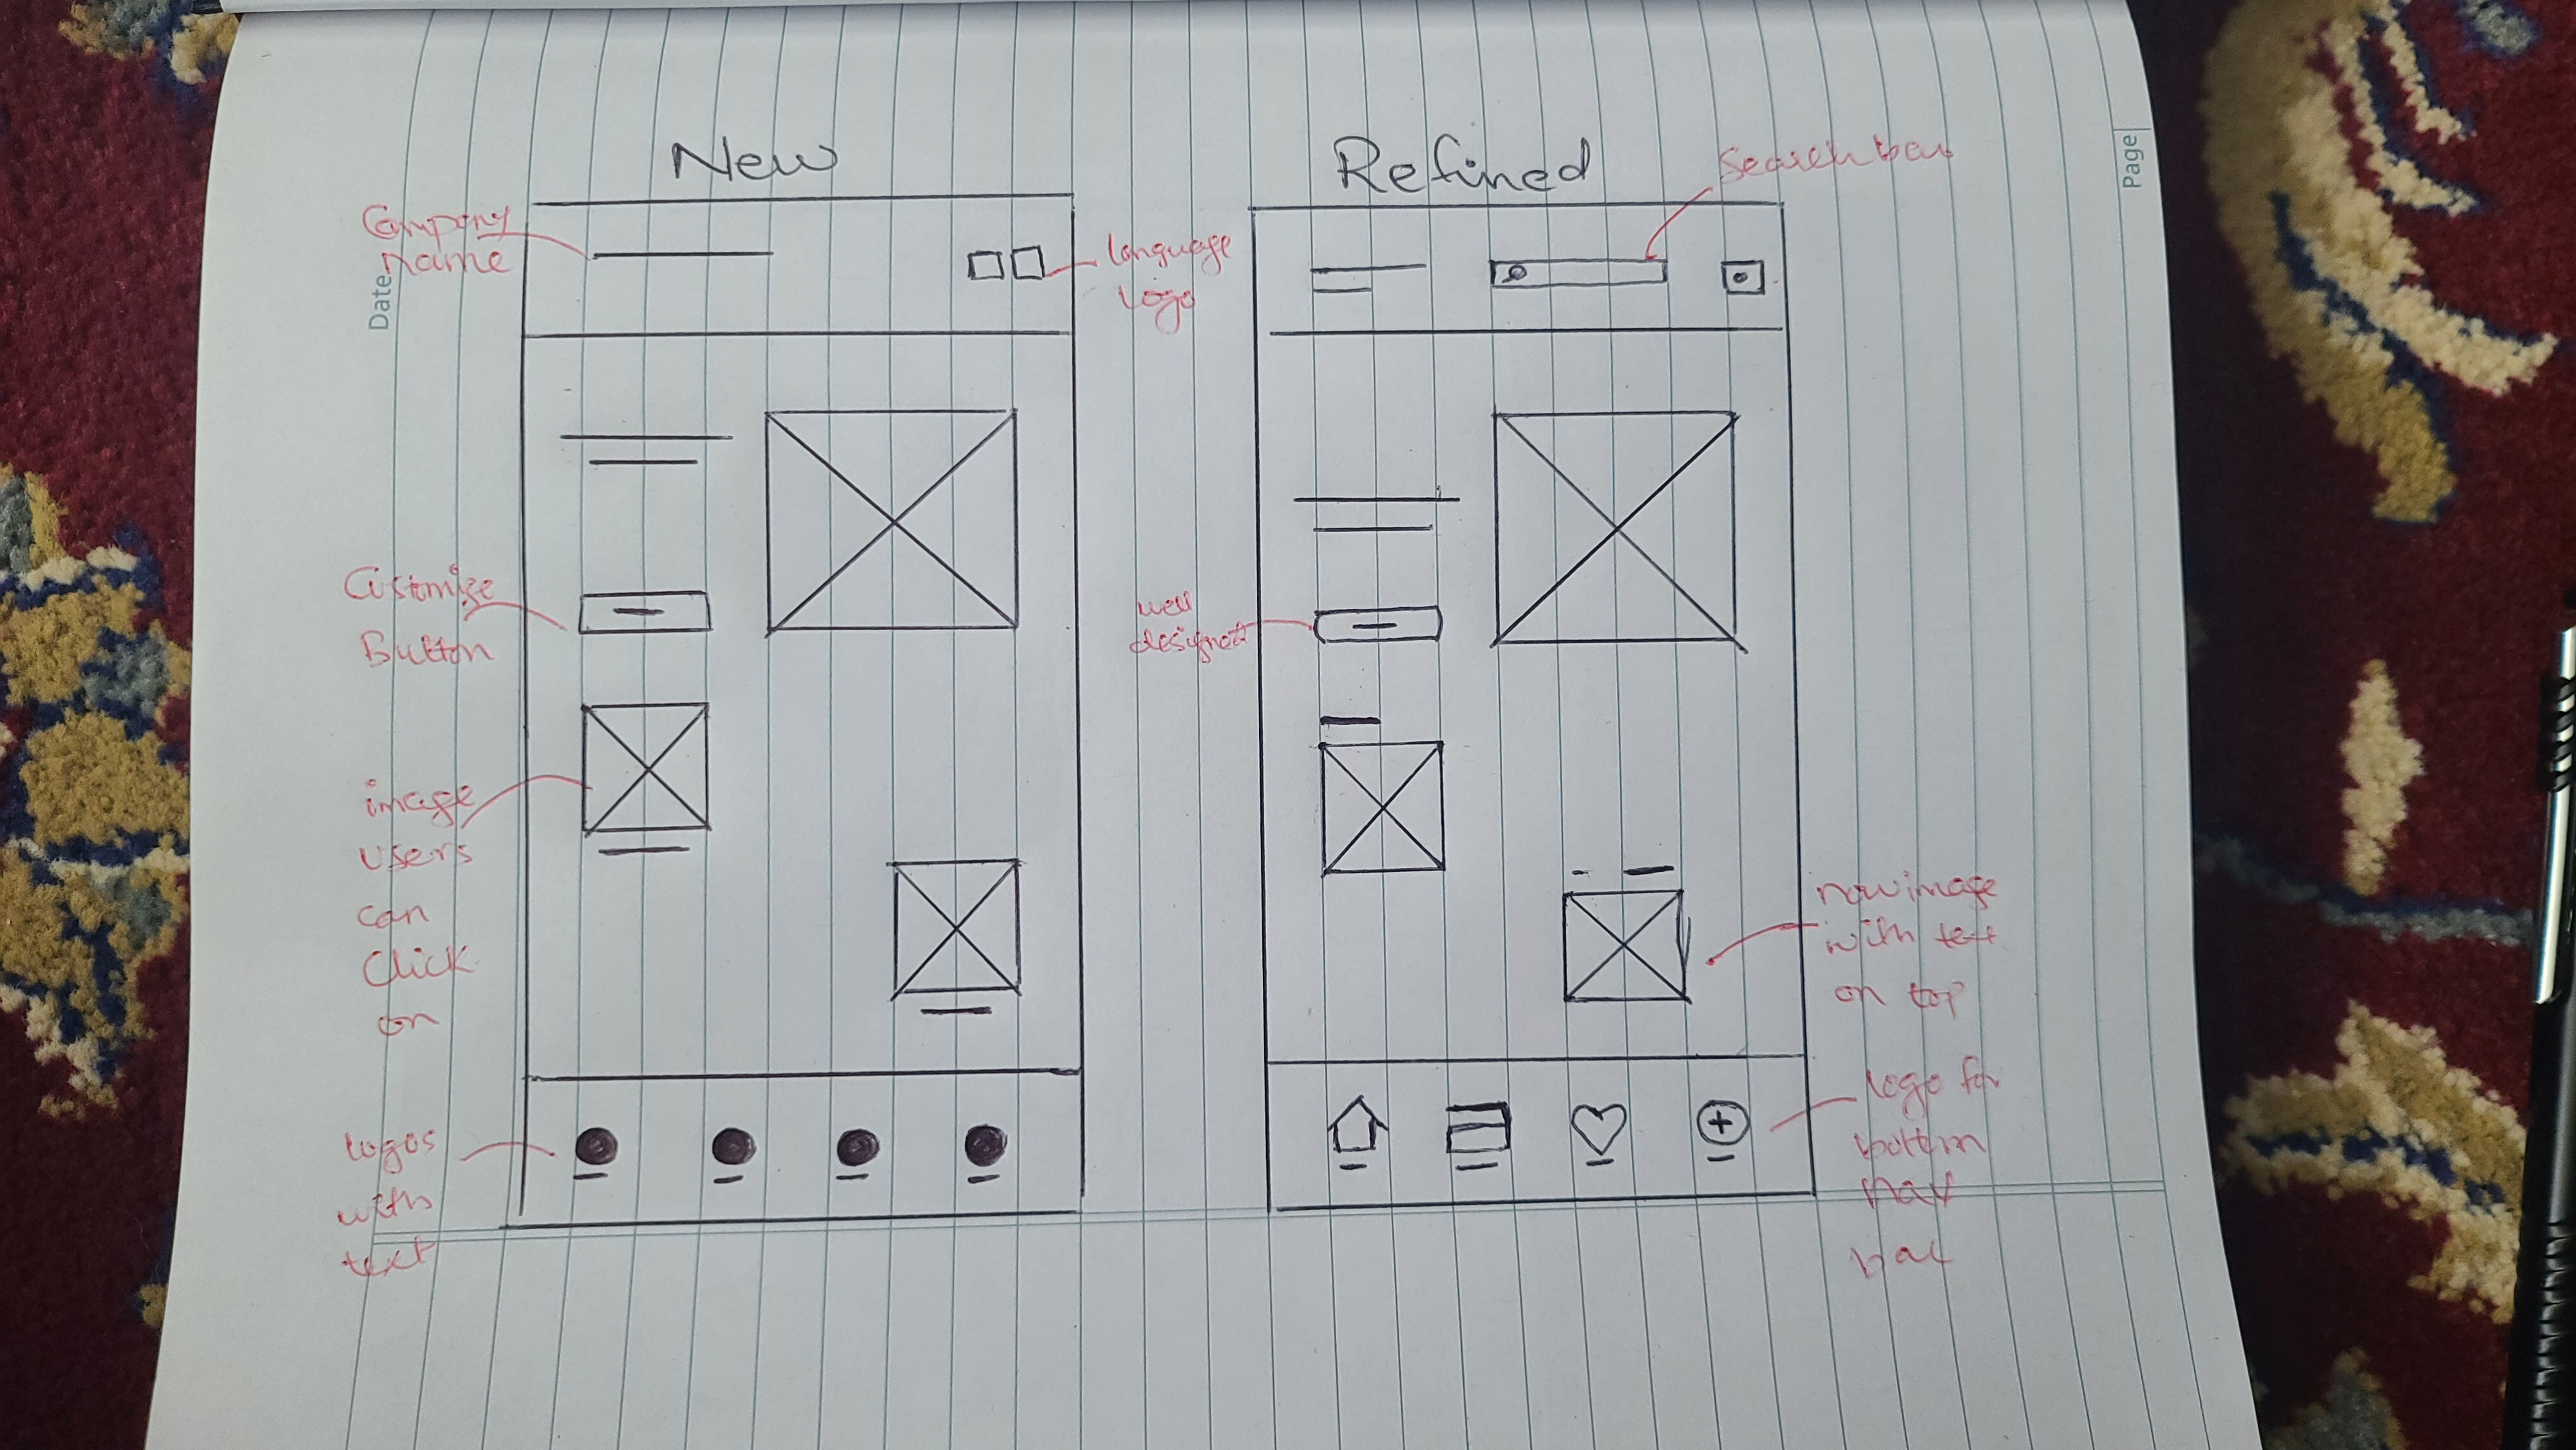 New
Refined
Search bar
Company
name
language
logo
Date
Page
Customize
Button
well
designed
image
users
can
Click
on
now image
with text
on top
logos
with
text
logo for
bottom
nav
bar